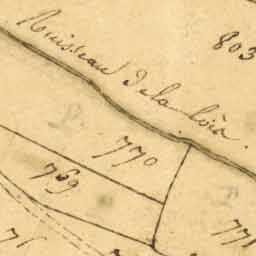 Ruisseau de la
803
770
769
771